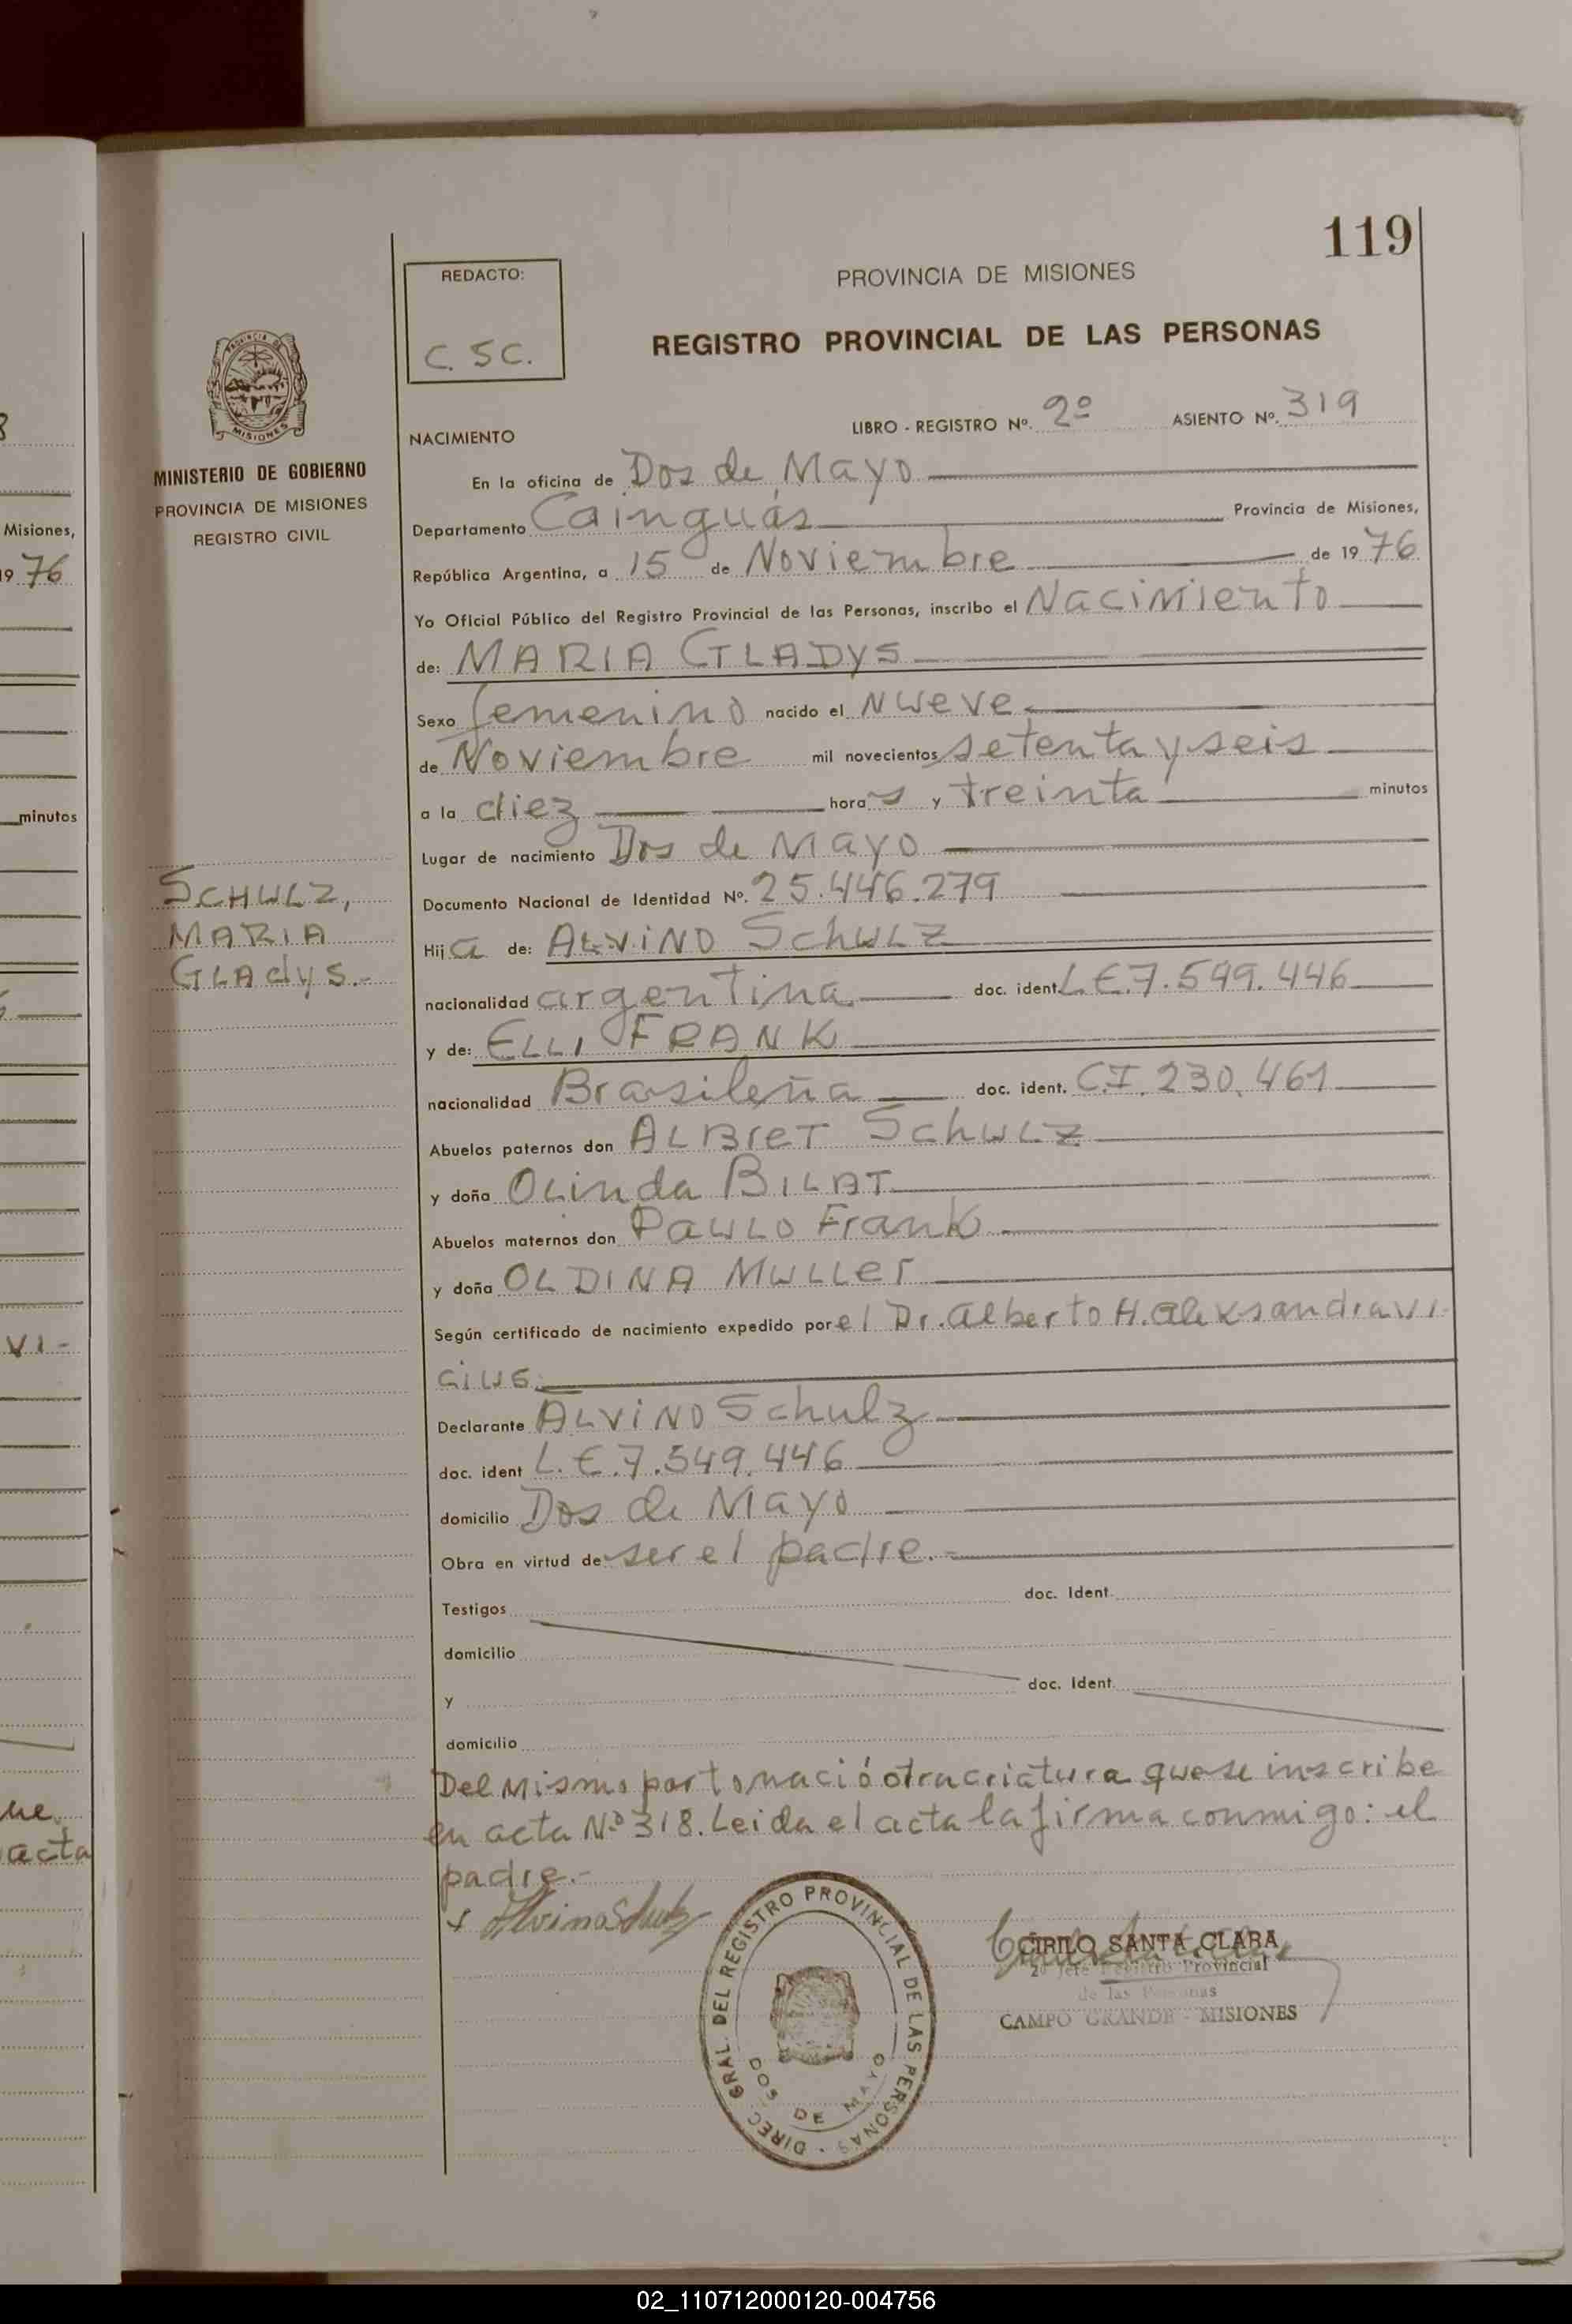 119
REDACTO:
C. SC.
PROVINCIA DE MISIONES
REGISTRO PROVINCIAL DE LAS PERSONAS
PROVINCIA DE MISIONES
MINISTERIO DE GOBIERNO
PROVINCIA DE MISIONES
REGISTRO CIVIL
NACIMIENTO LIBRO - REGISTRO Nº. 2º ASIENTO Nº. 319
En la oficina de Dos de Mayo
Departamento Cainguás Provincia de Misiones,
República Argentina, a 15 de Noviembre de 1976
Yo Oficial Público del Registro Provincial de las Personas, inscribo el Nacimiento
de: MARIA GLADYS
Sexo femenino nacido el Nueve
de Noviembre mil novecientos setenta y seis
a la diez horas y treinta minutos
Lugar de nacimiento Dos de Mayo
SCHULZ,
MARIA
GLAdyS.-
Documento Nacional de Identidad Nº. 25.446.279
Hija de: ALVINO SchULZ
nacionalidad argentina doc. ident. L.E.7.549.446
y de: ELLI FRANK
nacionalidad Brasileña doc. ident. C.I. 230.461
Abuelos paternos don ALBreT SchULZ
y doña OLinda BILAT
Abuelos maternos don PAULO Frank
y doña OLDINA MULLer
Según certificado de nacimiento expedido por el Dr. Alberto H. Aleksandravi-
cius.
Declarante ALVINO Schulz
doc. ident L.E.7.549.446
domicilio Dos de Mayo
Obra en virtud de ser el padre.-
Testigos doc. Ident.
domicilio
y doc. Ident.
domicilio
Del Mismo parto nació otra criatura que se inscribe
en acta Nº 318. Leida el acta la firma conmigo: el
padre.-
Alvino Schulz
DIREC. GRAL. DEL REGISTRO PROVINCIAL DE LAS PERSONAS
DOS DE MAYO
CIRILO SANTA CLARA
2º Jefe Registro Provincial
de las Personas
CAMPO GRANDE - MISIONES
Misiones,
1976
minutos
vi-
ue
acta
02_110712000120-004756